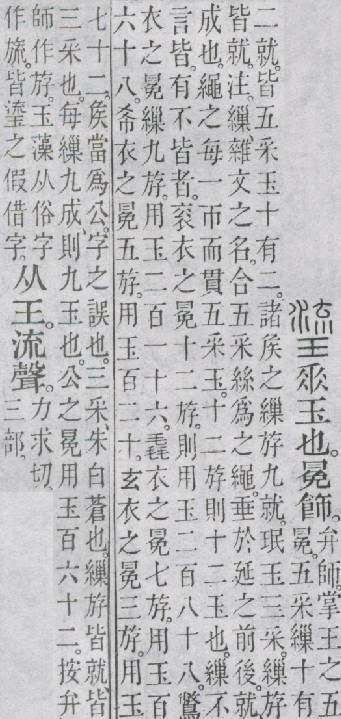 瑬𠂹玉也。冕飾。弁師。掌王之五
冕。五采繅十有
二就。皆五采玉十有二。諸矦之繅斿九就。珉玉三采。繅斿
皆就。注。繅、雜文之名。合五采絲爲之繩。垂於延之前後。就
成也。繩之每一帀而貫五采玉。十二斿則十二玉也。繅不
言皆。有不皆者。衮衣之冕十二斿。則用玉二百八十八。鷩
衣之冕繅九斿。用玉二百一十六。毳衣之冕七斿。用玉百
六十八。希衣之冕五斿。用玉百二十。玄衣之冕三斿。用玉
七十二。矦當爲公。字之誤也。三采、朱白蒼也。繅斿皆就皆
三采也。每繅九成、則九玉也。公之冕用玉百六十二。按弁
師作斿。玉藻从俗字
作旒。皆瑬之假借字。从王。流聲。力求切。
三部。